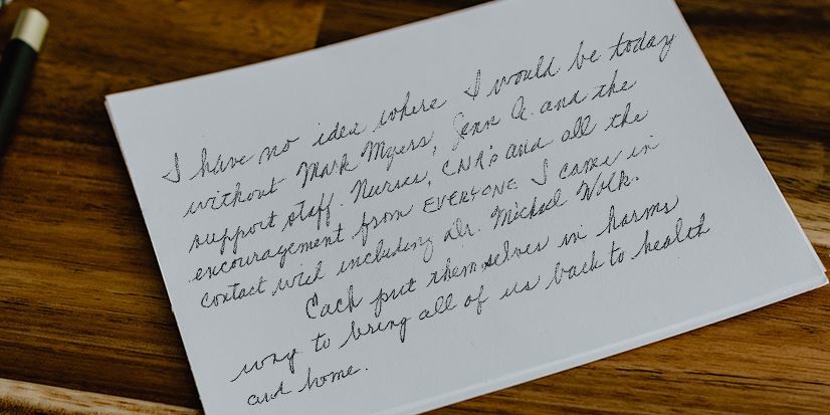 I have no idea where I would be today
without Mark Myers, Jenn A. and the
support staff. Nurses, CNA's and all the
encouragement from EVERYONE I came in
contact with including Dr. Michael Wolk.
Each put themselves in harms
way to bring all of us back to health
and home.